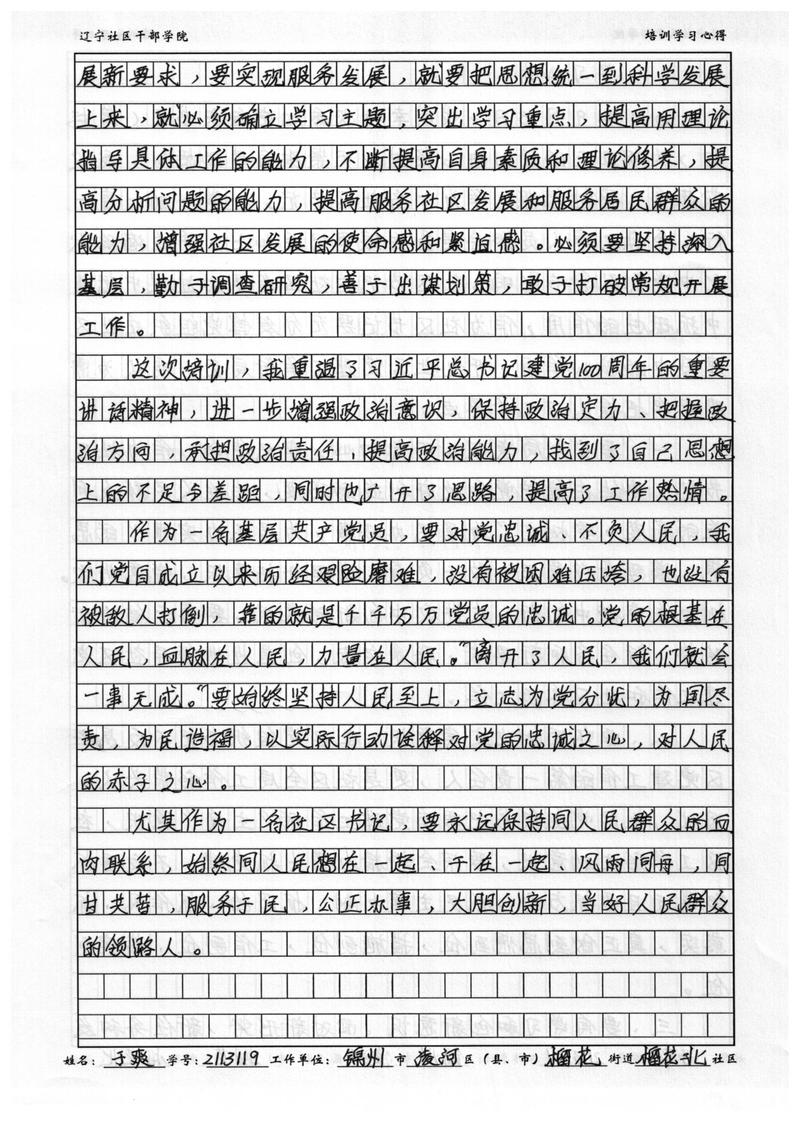 辽宁社区干部学院 培训学习心得
展新要求，要实现服务发展，就要把思想统一到科学发展
上来，就必须确立学习主题，突出学习重点，提高用理论
指导具体工作的能力，不断提高自身素质和理论修养，提
高分析问题的能力，提高服务社区发展和服务居民群众的
能力，增强社区发展的使命感和紧迫感。必须要坚持深入
基层，勤于调查研究，善于出谋划策，敢于打破常规开展
工作。
这次培训，我重温了习近平总书记建党100周年的重要
讲话精神，进一步增强政治意识，保持政治定力、把握政
治方向，承担政治责任，提高政治能力，找到了自己思想
上的不足与差距，同时也广开了思路，提高了工作热情。
作为一名基层共产党员，要对党忠诚、不负人民，我
们党自成立以来历经艰险磨难，没有被困难压垮，也没有
被敌人打倒，靠的就是千千万万党员的忠诚。党的根基在
人民，血脉在人民，力量在人民。“离开了人民，我们就会
一事无成。”要始终坚持人民至上，立志为党分忧，为国尽
责，为民造福，以实际行动诠释对党的忠诚之心，对人民
的赤子之心。
尤其作为一名社区书记，要永远保持同人民群众的血
肉联系，始终同人民想在一起、干在一起、风雨同舟，同
甘共苦，服务于民，公正办事，大胆创新，当好人民群众
的领路人。
姓名：于爽 学号：2113119 工作单位：锦州市凌河区（县、市）榴花街道榴花北社区